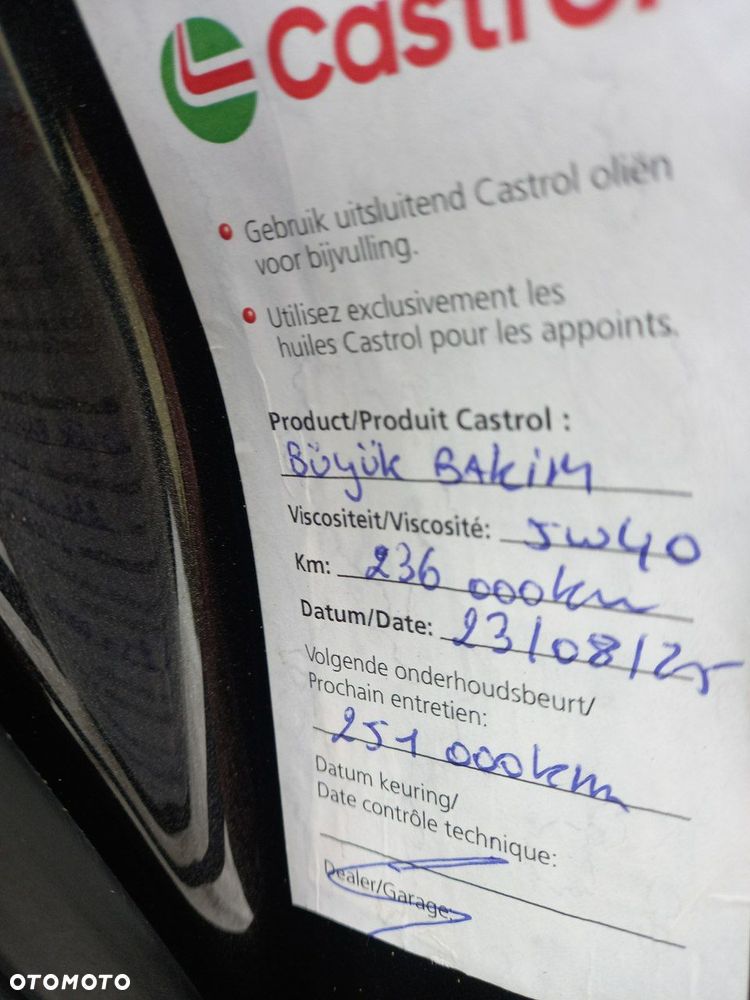 Castrol
Gebruik uitsluitend Castrol oliën
voor bijvulling.
Utilisez exclusivement les
huiles Castrol pour les appoints.
Product/Produit Castrol :
BÜYÜK BAKIM
Viscositeit/Viscosité: 5W40
Km: 236 000km
Datum/Date: 23/08/25
Volgende onderhoudsbeurt/
Prochain entretien:
251 000km
Datum keuring/
Date contrôle technique:
Dealer/Garage:
OTOMOTO